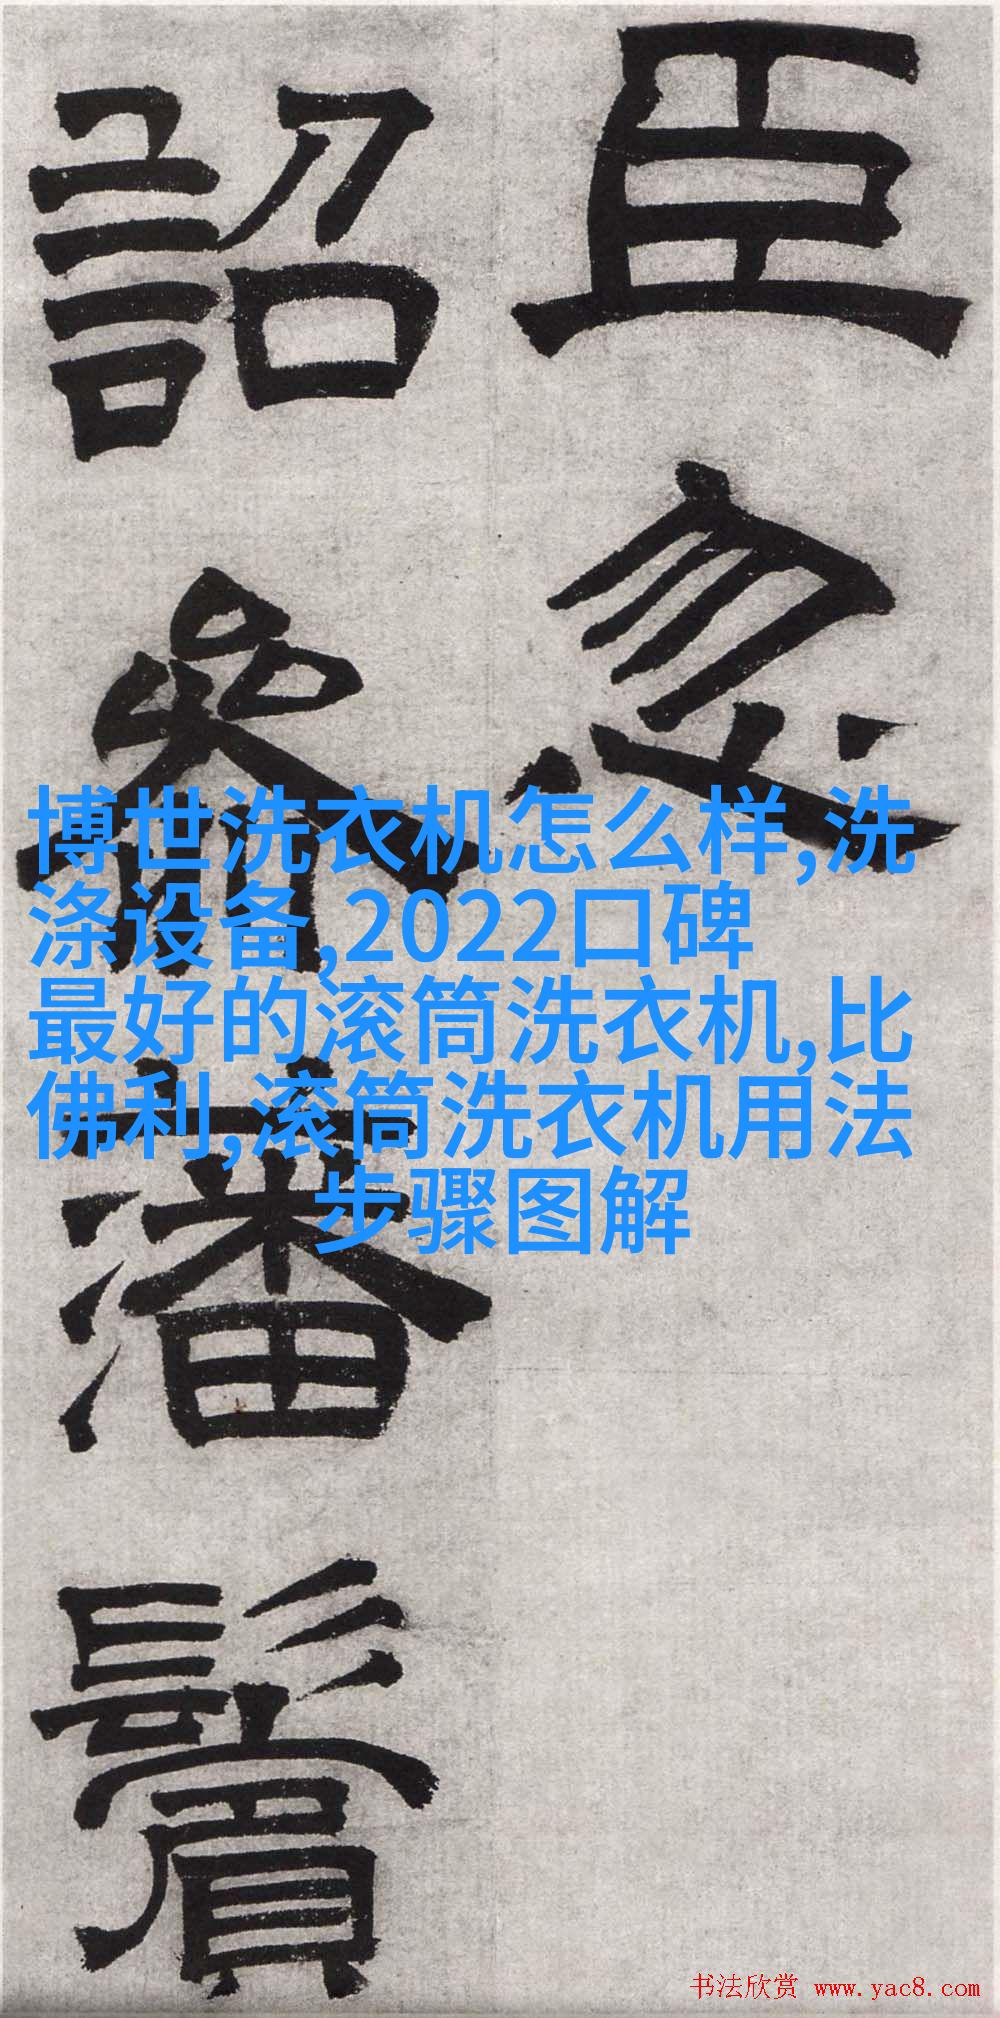 臣忽
詔參潘鬢
博世洗衣机怎么样,洗
涤设备,2022口碑
最好的滚筒洗衣机,比
佛利,滚筒洗衣机用法
步骤图解
书法欣赏 www.yac8.com